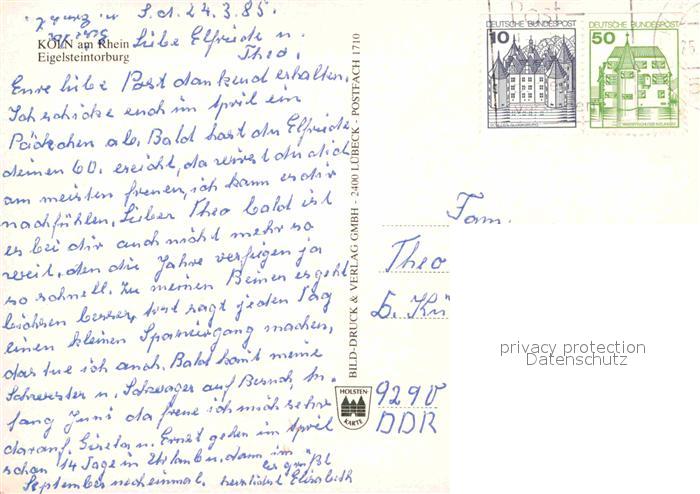 S.d. 24.3.85.
KÖLN am Rhein
Eigelsteintorburg
Liebe Elfriede u.
Theo.
Eure liebe Post dankend erhalten.
Ich schicke euch im April ein
Päckchen ab. Bald hast du Elfriede
deinen 60. ereicht, da wirst du dich
am meisten freuen, ich kann es dir
nachfühlen. Lieber Theo bald ist
es bei dir auch nicht mehr so
weit, den die Jahre verfligen ja
so schnell. Zu meinen Beinen es geht
bichsen besser, Arzt sagt jeden Tag
einen kleinen Spaziergang machen,
das tue ich auch. Bald komt meine
Schwester u. Schwager auf Besuch, An-
fang Juni da freue ich mich sehr
darauf. Gisela u. Ernst gehen im April
schon 14 Tage in Urlaub, dann im
September noch einmal. es grüßt
herzlichst Elisabeth
BILD-DRUCK & VERLAG GMBH - 2400 LÜBECK - POSTFACH 1710
HOLSTEN-
KARTE
DEUTSCHE BUNDESPOST
10
DEUTSCHE BUNDESPOST
50
Fam.
Theo
b. Kü
9290
DDR
privacy protection
Datenschutz